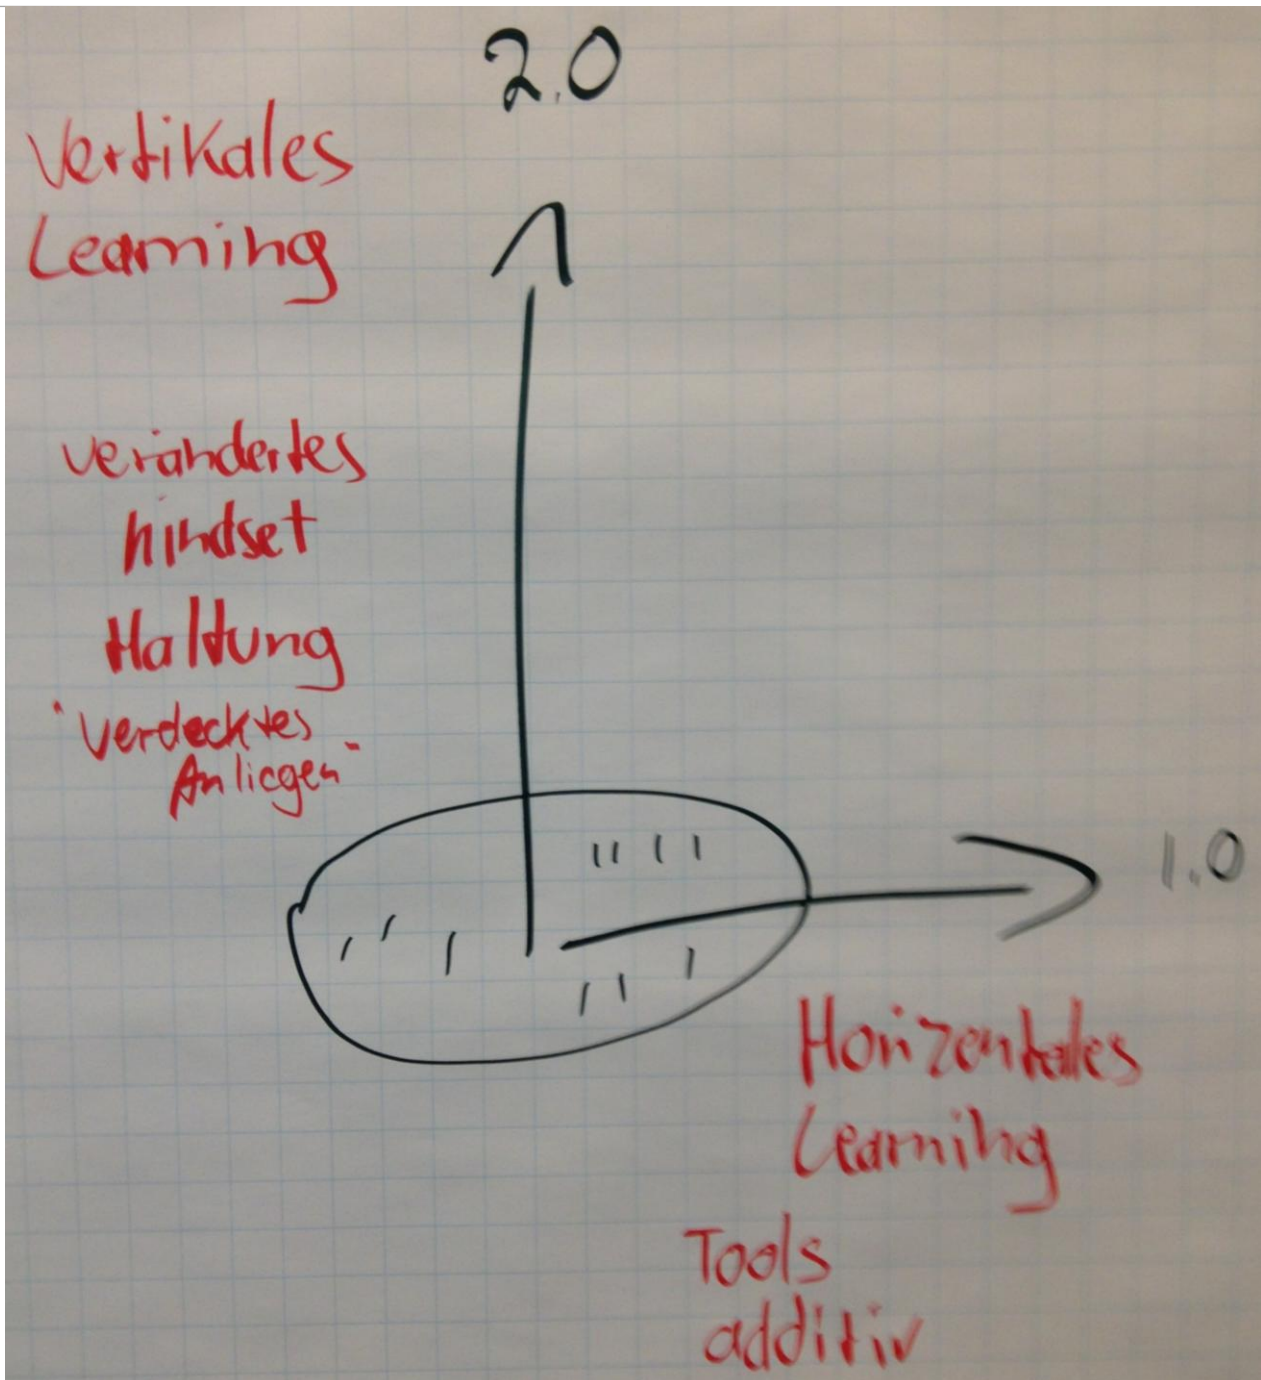 2.0
Vertikales
Learning
verändertes
Mindset
Haltung
"verdecktes
Anliegen"
1.0
Horizontales
Learning
Tools
additiv